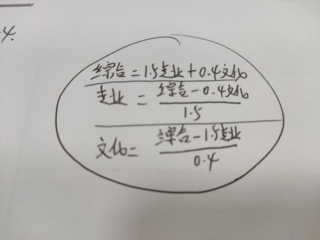 4.
综合=1.5专业+0.4文化
专业=综合-0.4文化
1.5
文化=综合-1.5专业
0.4